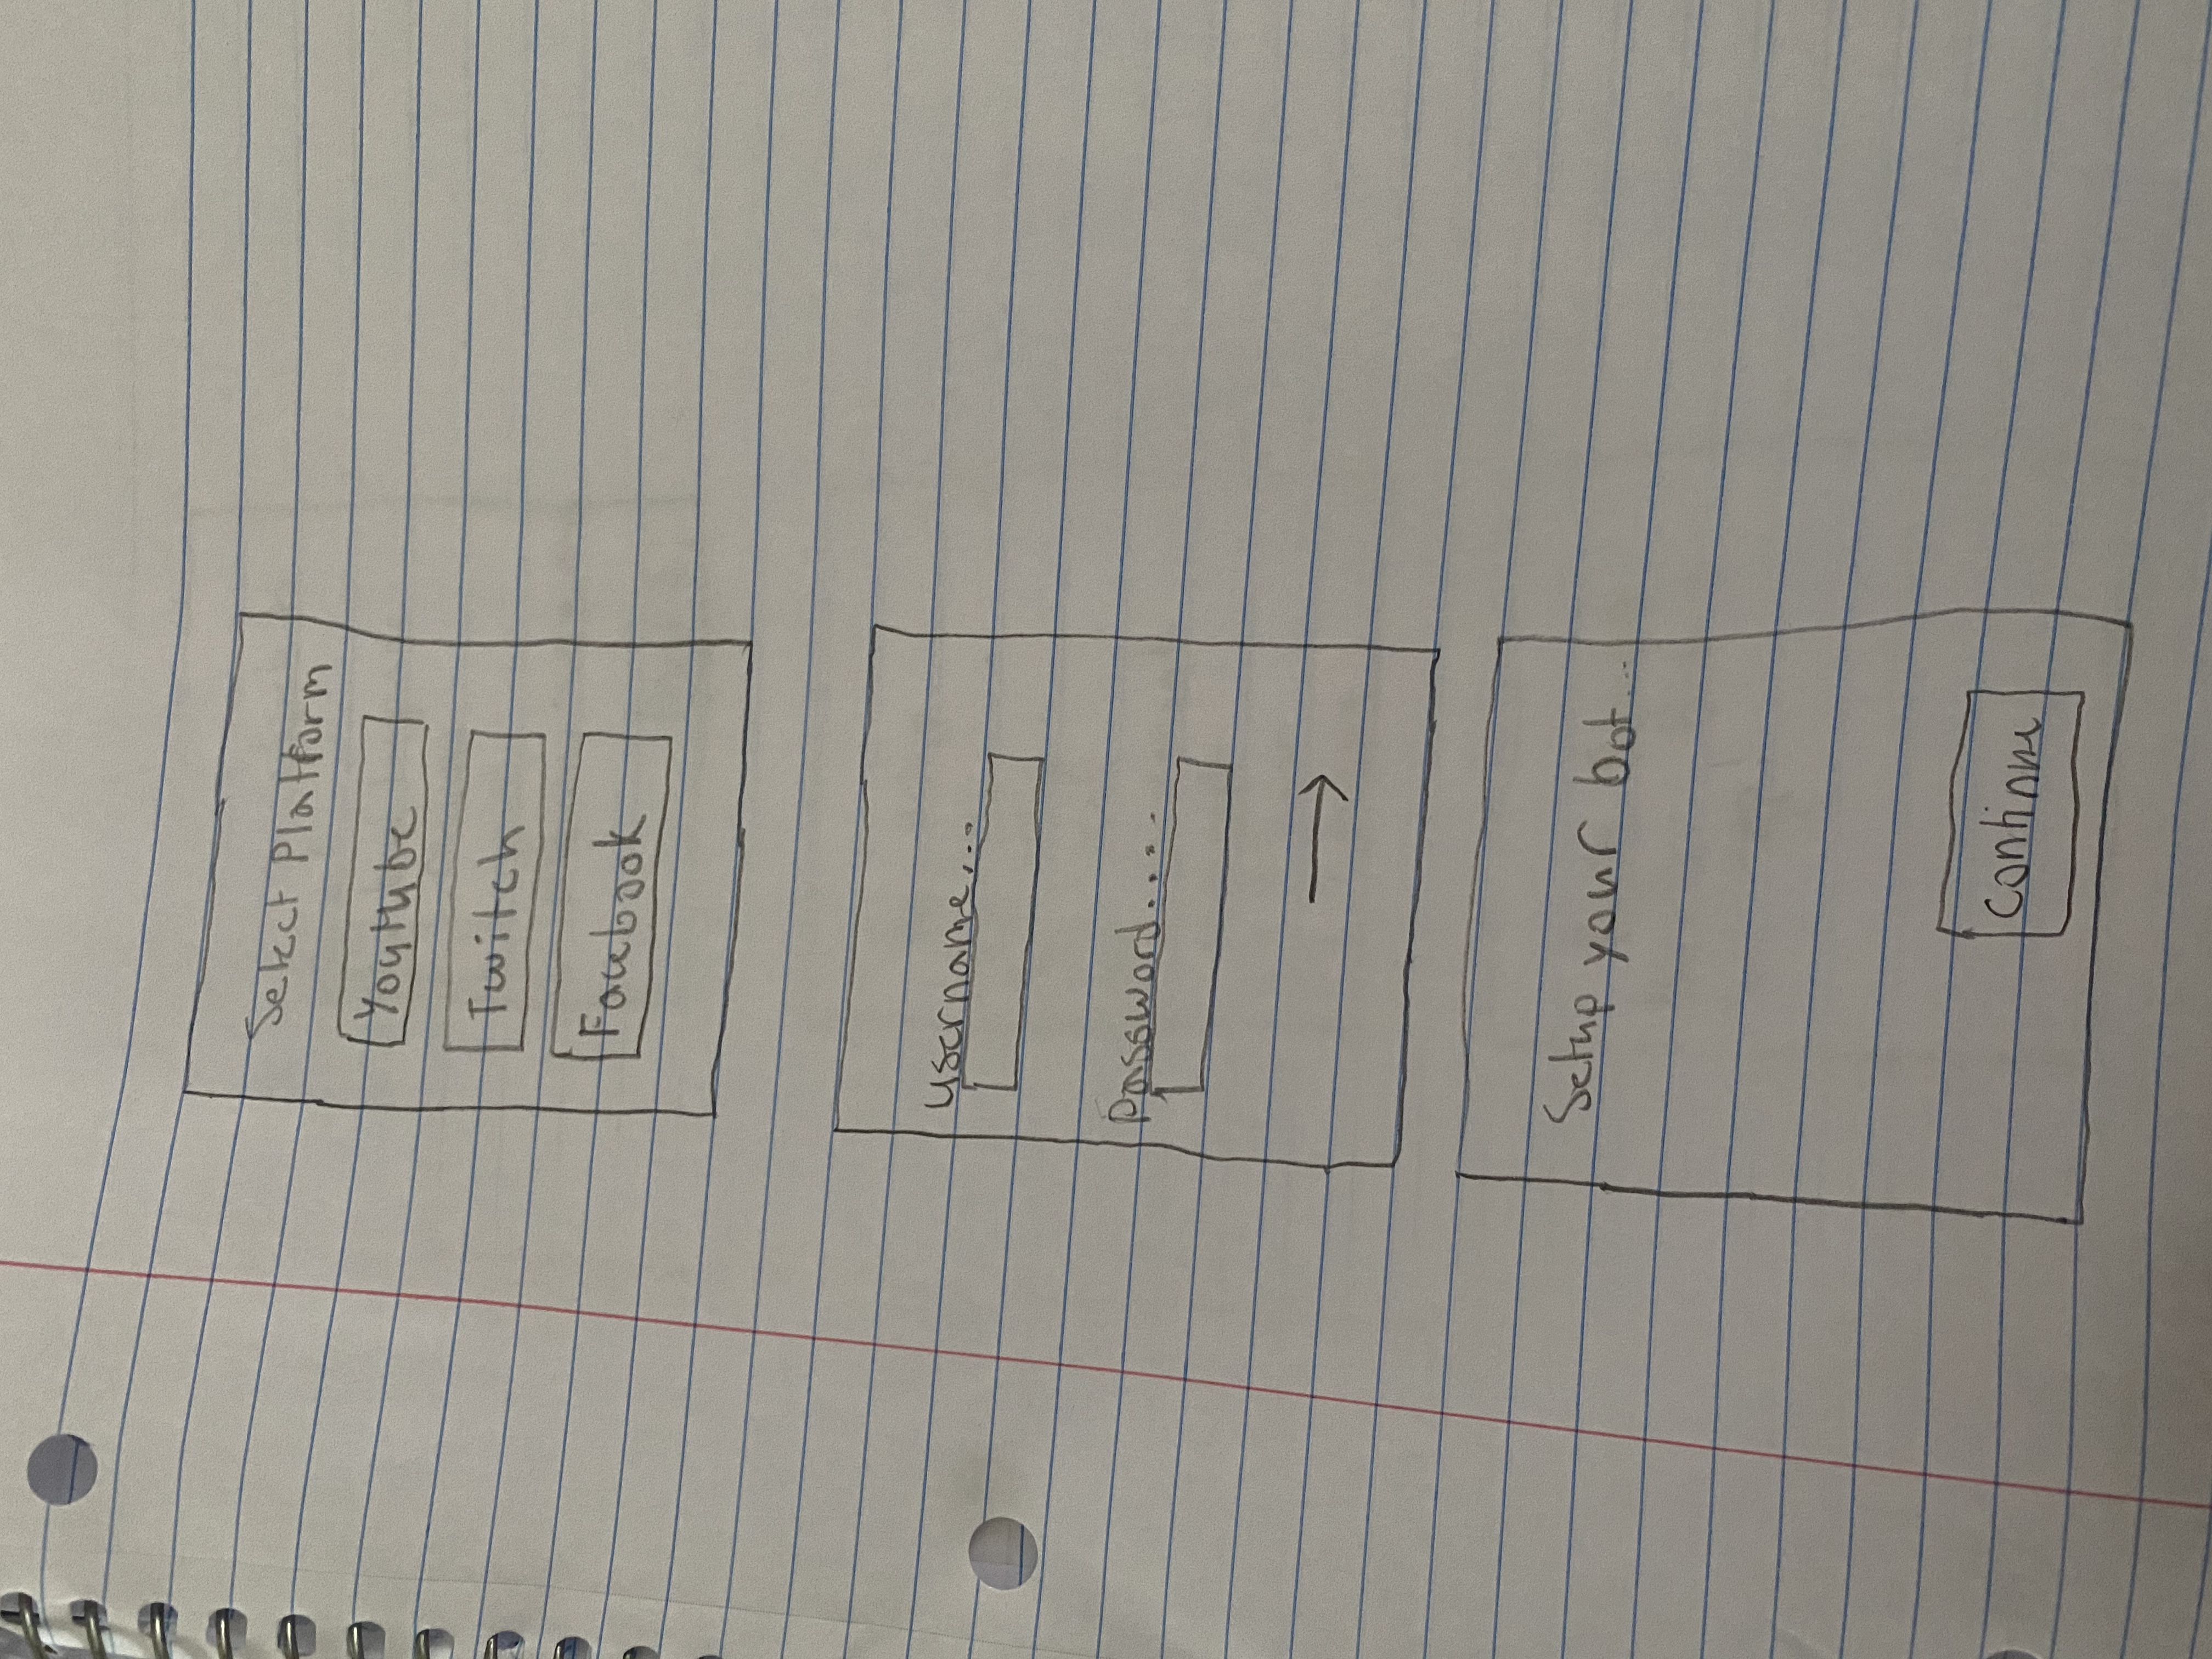 Select Platform
Youtube
Twitch
Facebook
username...
Password....
Setup your bot...
Continue